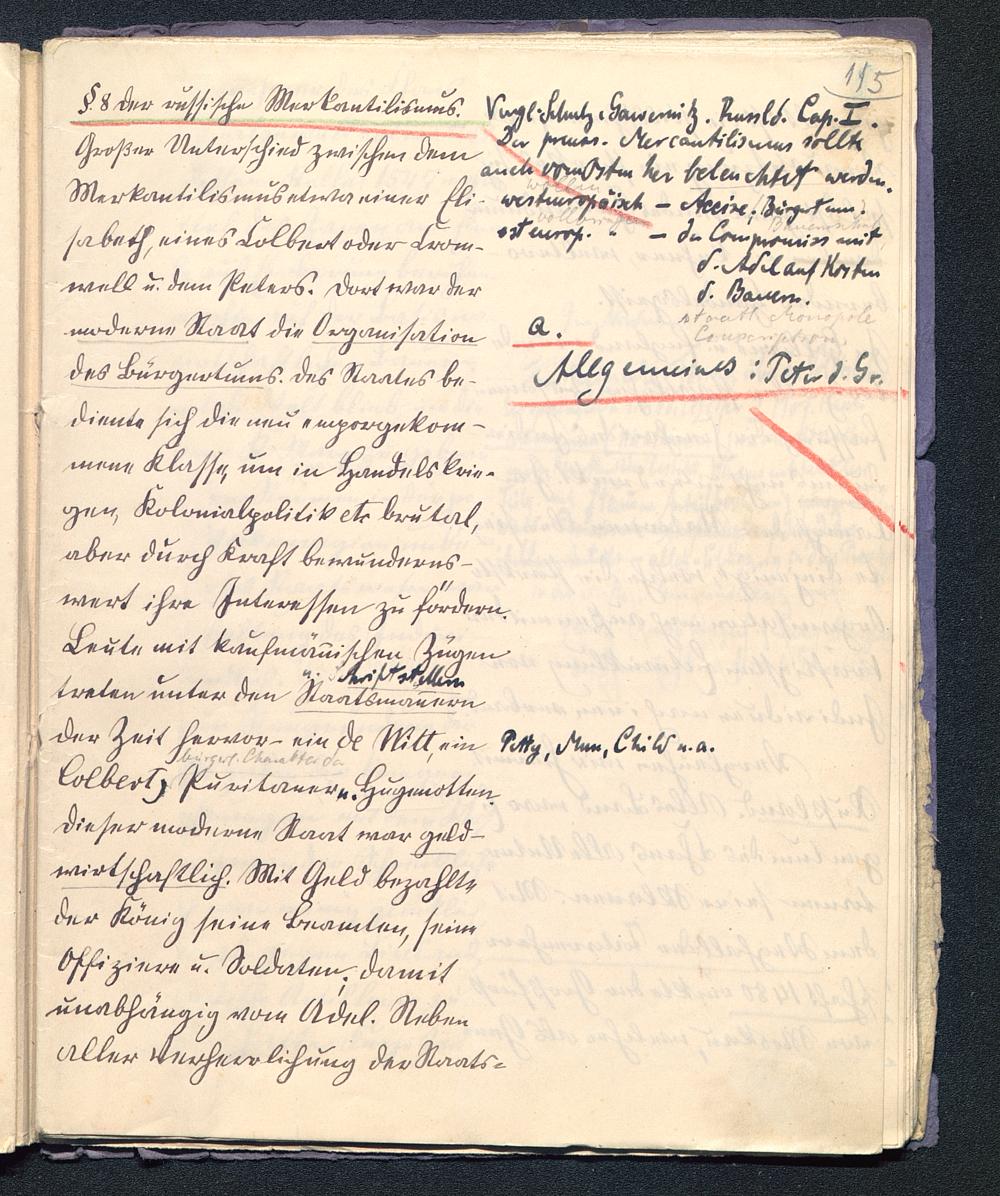 115
§. 8 der russische Merkantilismus.
Großer Unterschied zwischen dem
Merkantilismus etwa einer Eli-
sabeth, eines Colbert oder Crom-
well u. dem Peters. Dort war der
moderne Staat die Organisation
des Bürgertums. Des Staates be-
diente sich die neu emporgekom-
mene Klasse, um in Handelskrie-
gen, Kolonialpolitik etc brutal,
aber durch Kraft bewunderns-
wert ihre Interessen zu fördern.
Leute mit kaufmännischen Zügen
u. Schriftstellern
treten unter den Staatsmännern
der Zeit hervor – ein de Witt, ein
bürgerl. Charakter der
Colbert; Puritaner u. Hugenotten.
Dieser moderne Staat war geld-
wirtschaftlich. Mit Geld bezahlte
der König seine Beamten, seine
Offiziere u. Soldaten; damit
unabhängig vom Adel. Neben
aller Verherrlichung der Staats-
Vergl. Schulze-Gaevernitz. Russld. Cap. I.
Der preuss. Mercantilismus sollte
auch vom Osten her beleuchtet werden.
westeuropäisch – Accise, Bürgertum.
osteurop. " – der Compromiss mit
d. Adel auf Kosten
d. Bauern.
staatl. Monopole
a.
Allgemeines: Peter d. Gr.
Petty, Mun, Child u. a.